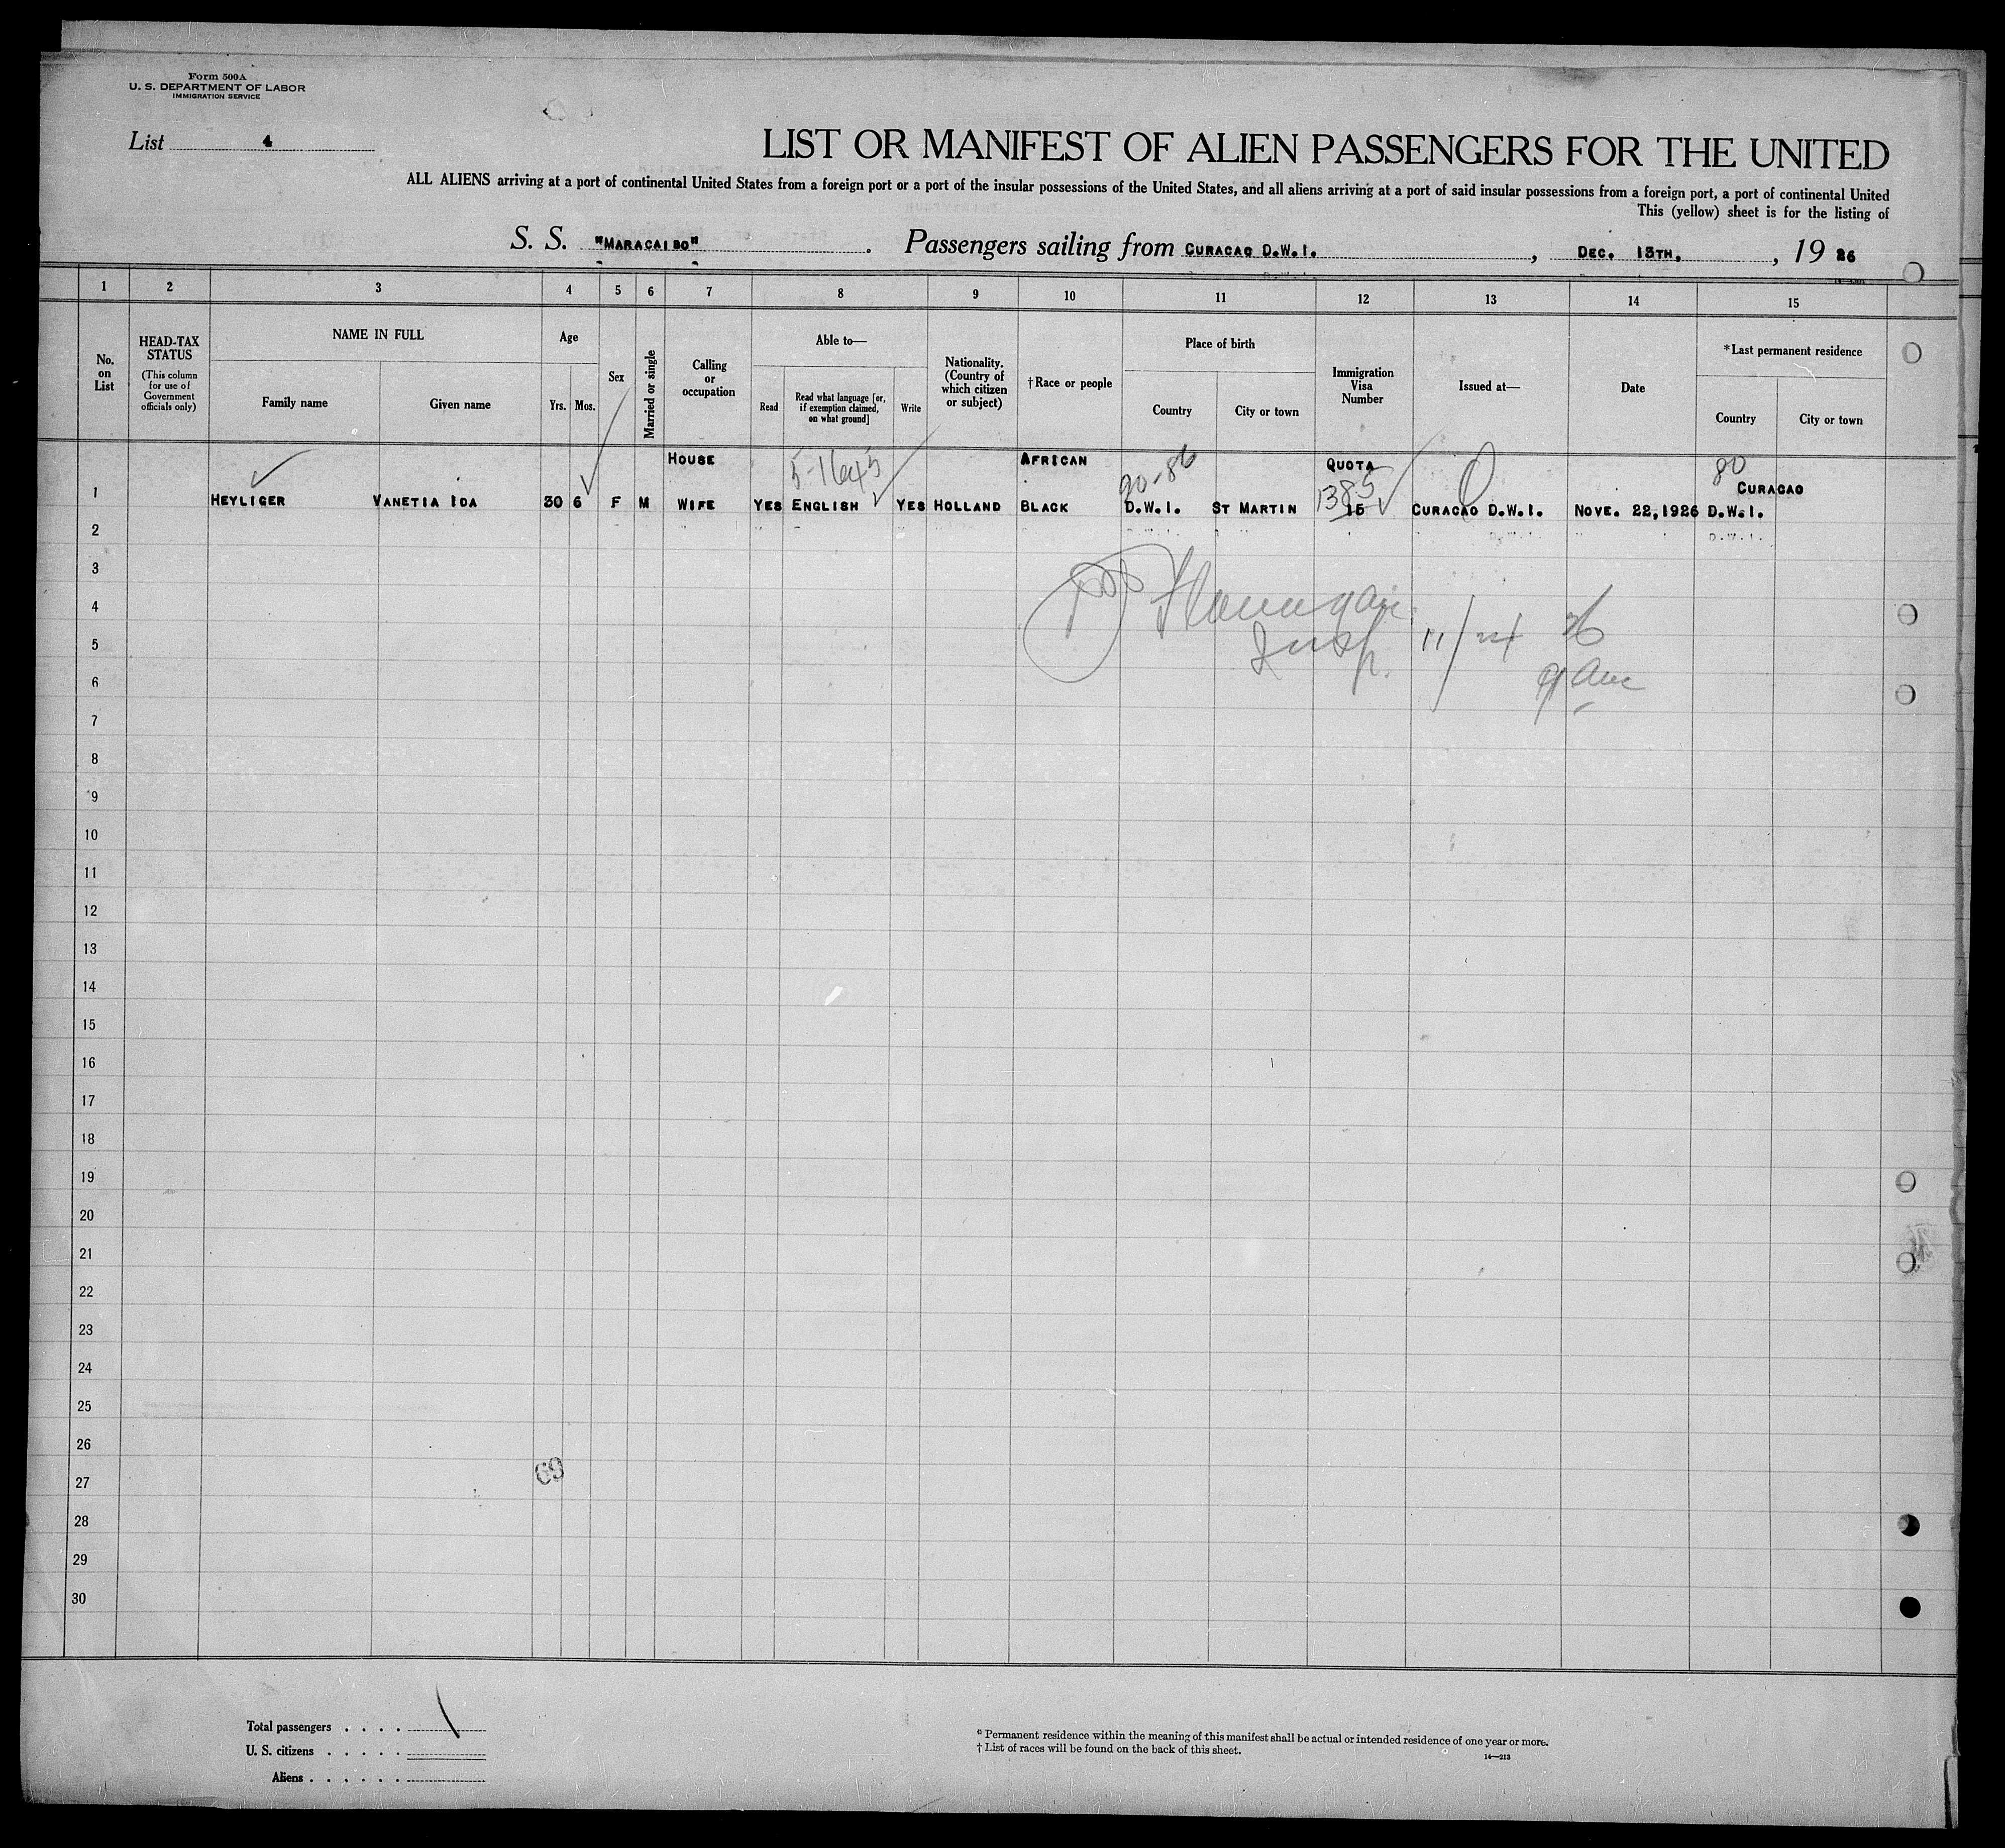 Form 500A
U. S. DEPARTMENT OF LABOR
IMMIGRATION SERVICE
List 4
LIST OR MANIFEST OF ALIEN PASSENGERS FOR THE UNITED
ALL ALIENS arriving at a port of continental United States from a foreign port or a port of the insular possessions of the United States, and all aliens arriving at a port of said insular possessions from a foreign port, a port of continental United
This (yellow) sheet is for the listing of
S. S. "MARACAIBO". Passengers sailing from CURACAO D.W.I., DEC. 13TH., 19 26
1 2 3 4 5 6 7 8 9 10 11 12 13 14 15
No. on List
HEAD-TAX STATUS
(This column for use of Government officials only)
NAME IN FULL
Family name
Given name
Age
Yrs. Mos.
Sex
Married or single
Calling or occupation
Able to—
Read
Read what language [or, if exemption claimed, on what ground]
Write
Nationality. (Country of which citizen or subject)
†Race or people
Place of birth
Country
City or town
Immigration Visa Number
Issued at—
Date
*Last permanent residence
Country
City or town
HOUSE 5-1645 AFRICAN 90-86 QUOTA 80
1385 CURACAO
1 HEYLIGER VANETIA IDA 30 6 F M WIFE YES ENGLISH YES HOLLAND BLACK D.W.I. ST MARTIN 15 CURACAO D.W.I. NOVE. 22,1926 D.W.I.
2
3
4
5
Insp. 11/24 26
6
9 am
7
8
9
10
11
12
13
14
15
16
17
18
19
20
21
22
23
24
25
26
27
69
28
29
30
Total passengers . . . .
U. S. citizens . . . . .
Aliens . . . . . .
* Permanent residence within the meaning of this manifest shall be actual or intended residence of one year or more.
† List of races will be found on the back of this sheet.
14—213